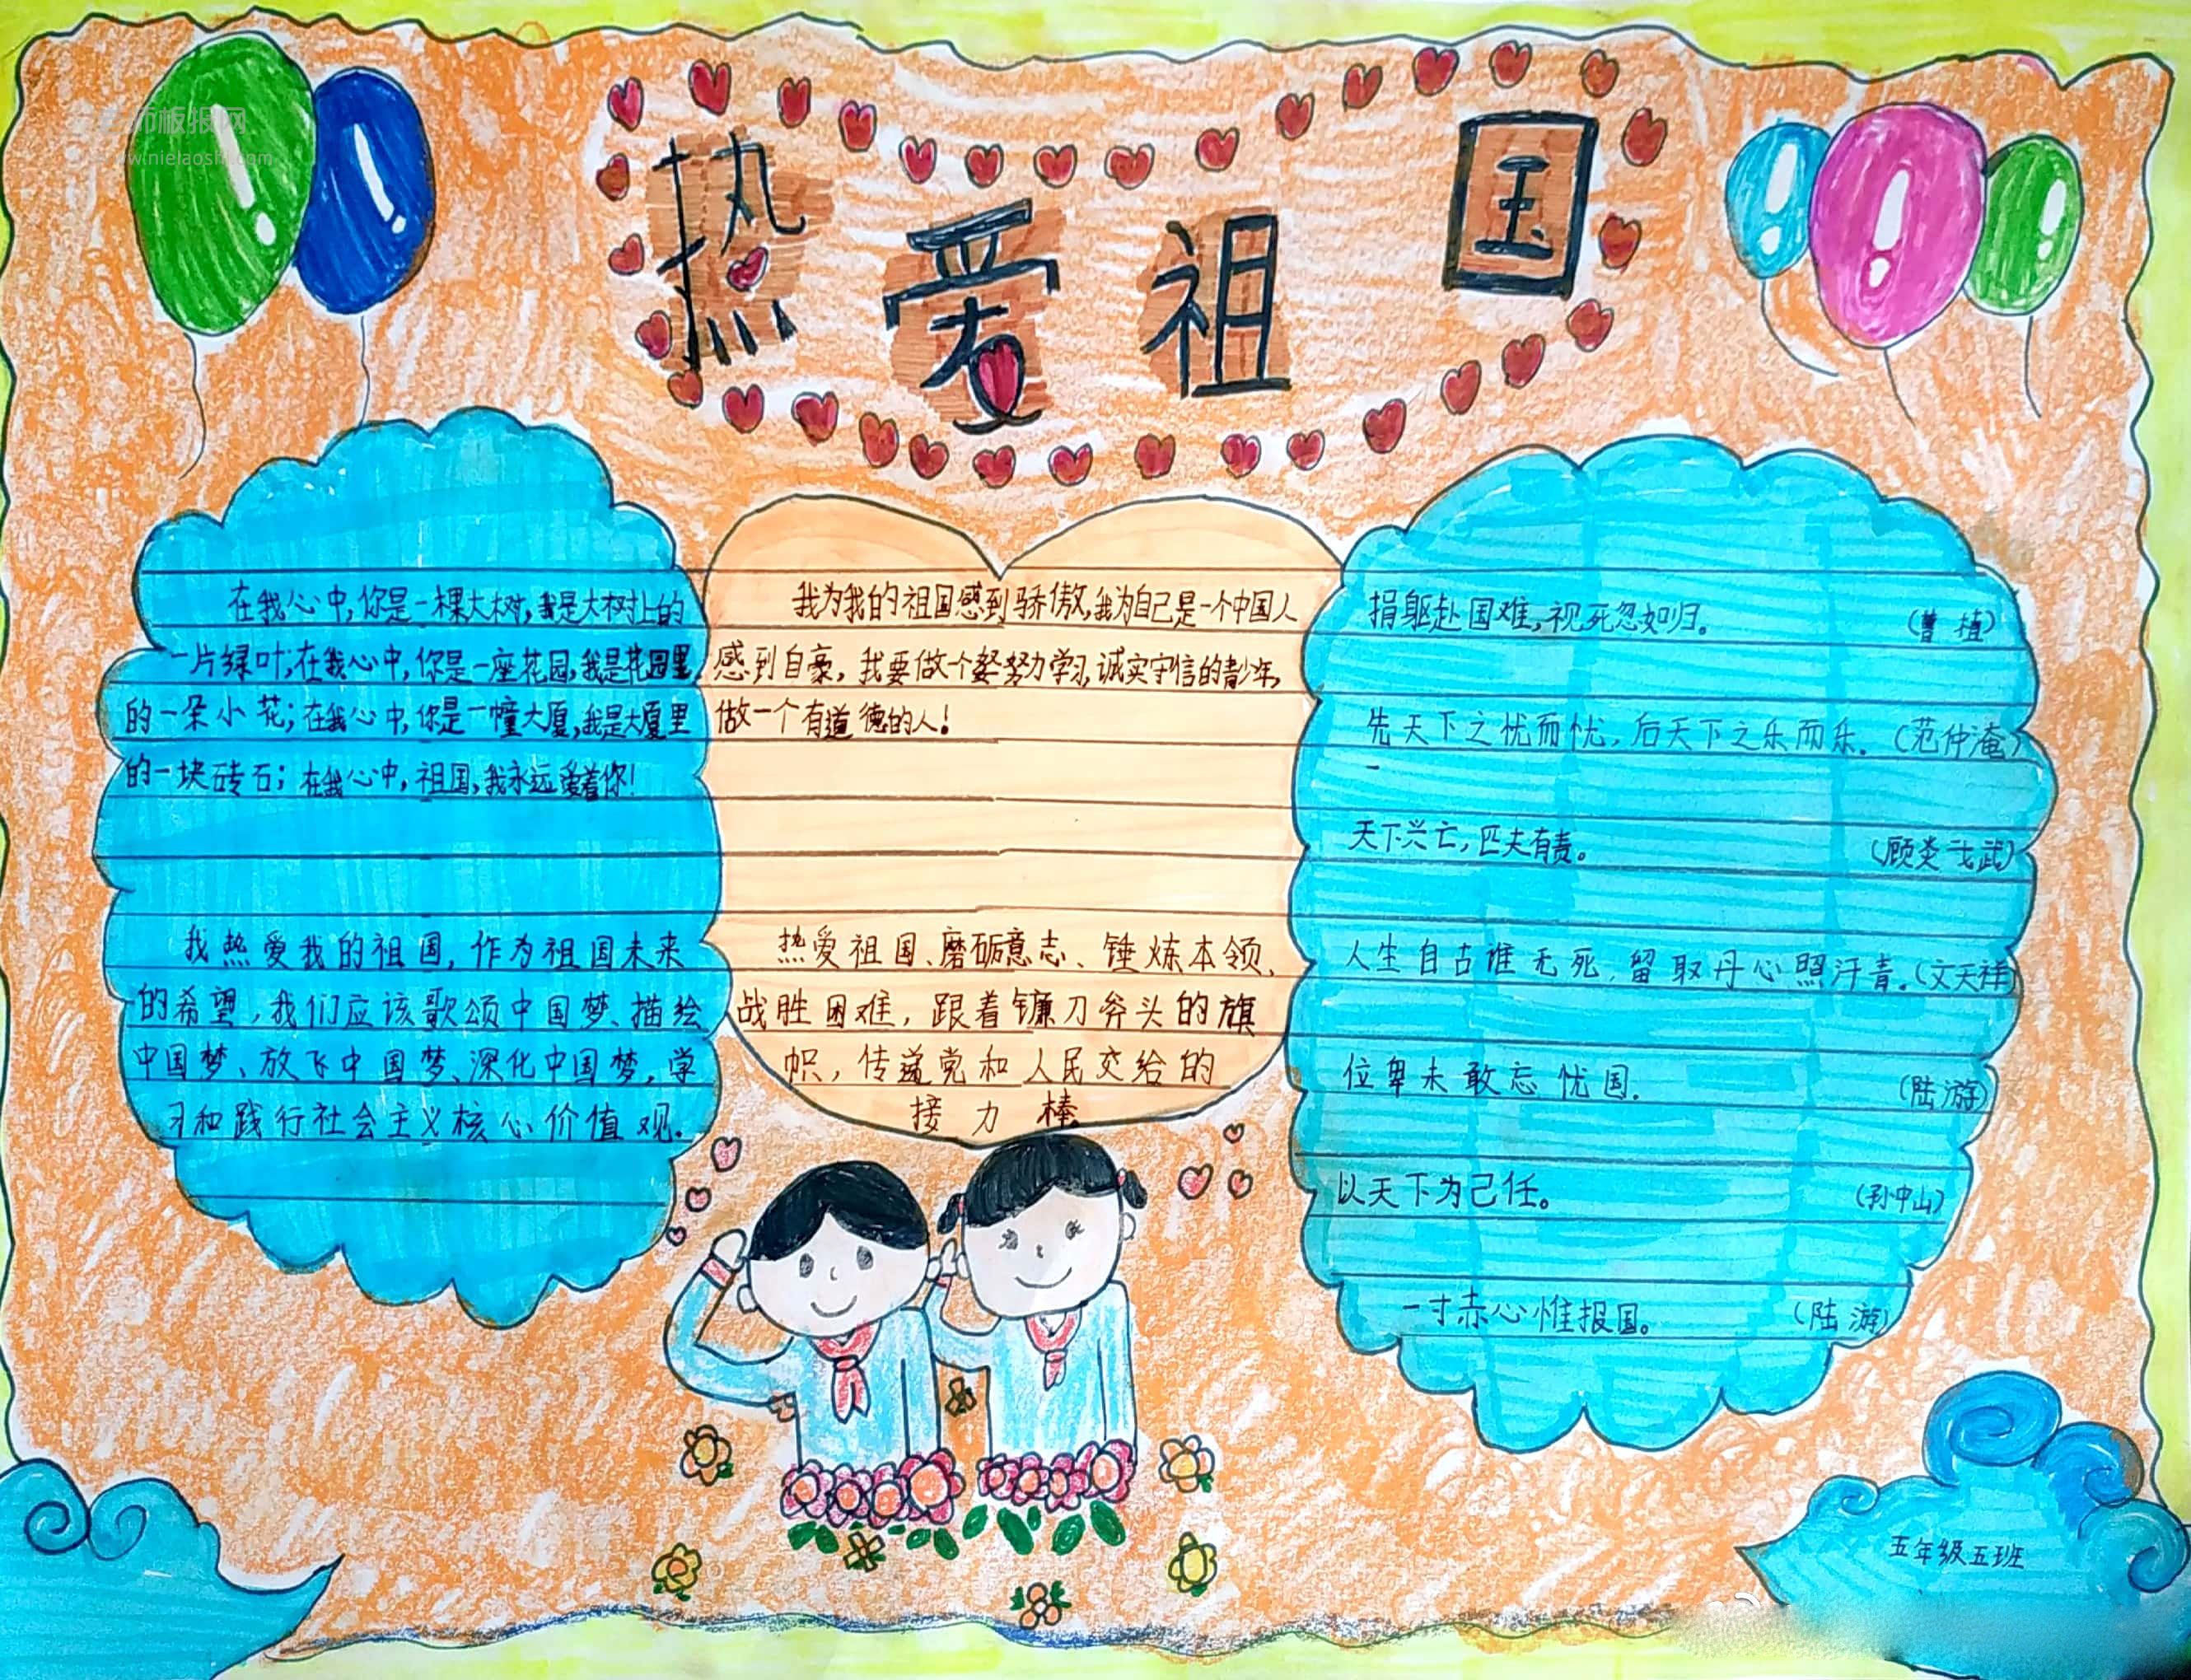 热爱祖国
在我心中,你是一棵大树,我是大树上的
一片绿叶;在我心中,你是一座花园,我是花园里
的一朵小花;在我心中,你是一幢大厦,我是大厦里
的一块砖石;在我心中,祖国,我永远爱着你!
我热爱我的祖国,作为祖国未来
的希望,我们应该歌颂中国梦、描绘
中国梦、放飞中国梦、深化中国梦,学
习和践行社会主义核心价值观.
我为我的祖国感到骄傲,我为自己是一个中国人
感到自豪,我要做个努力学习,诚实守信的青少年,
做一个有道德的人!
热爱祖国、磨砺意志、锤炼本领、
战胜困难,跟着镰刀斧头的旗
帜,传递党和人民交给的
接力棒
捐躯赴国难,视死忽如归。(曹植)
先天下之忧而忧,后天下之乐而乐.(范仲淹)
天下兴亡,匹夫有责。(顾炎武)
人生自古谁无死,留取丹心照汗青。(文天祥)
位卑未敢忘忧国.(陆游)
以天下为己任。(孙中山)
一寸赤心惟报国。(陆游)
五年级五班
师板报网
w.nielaoshi.com